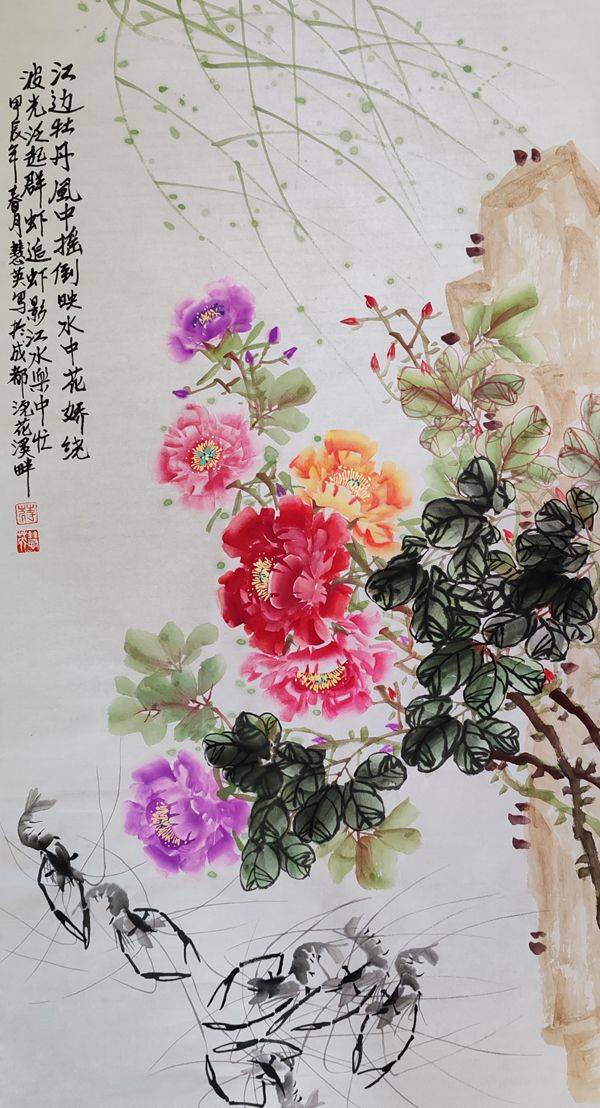 江边牡丹風中摇倒映水中花娇绕
波光泛起群虾追虾影江水樂中忙
甲辰年春月慧英写於成都浣花溪畔